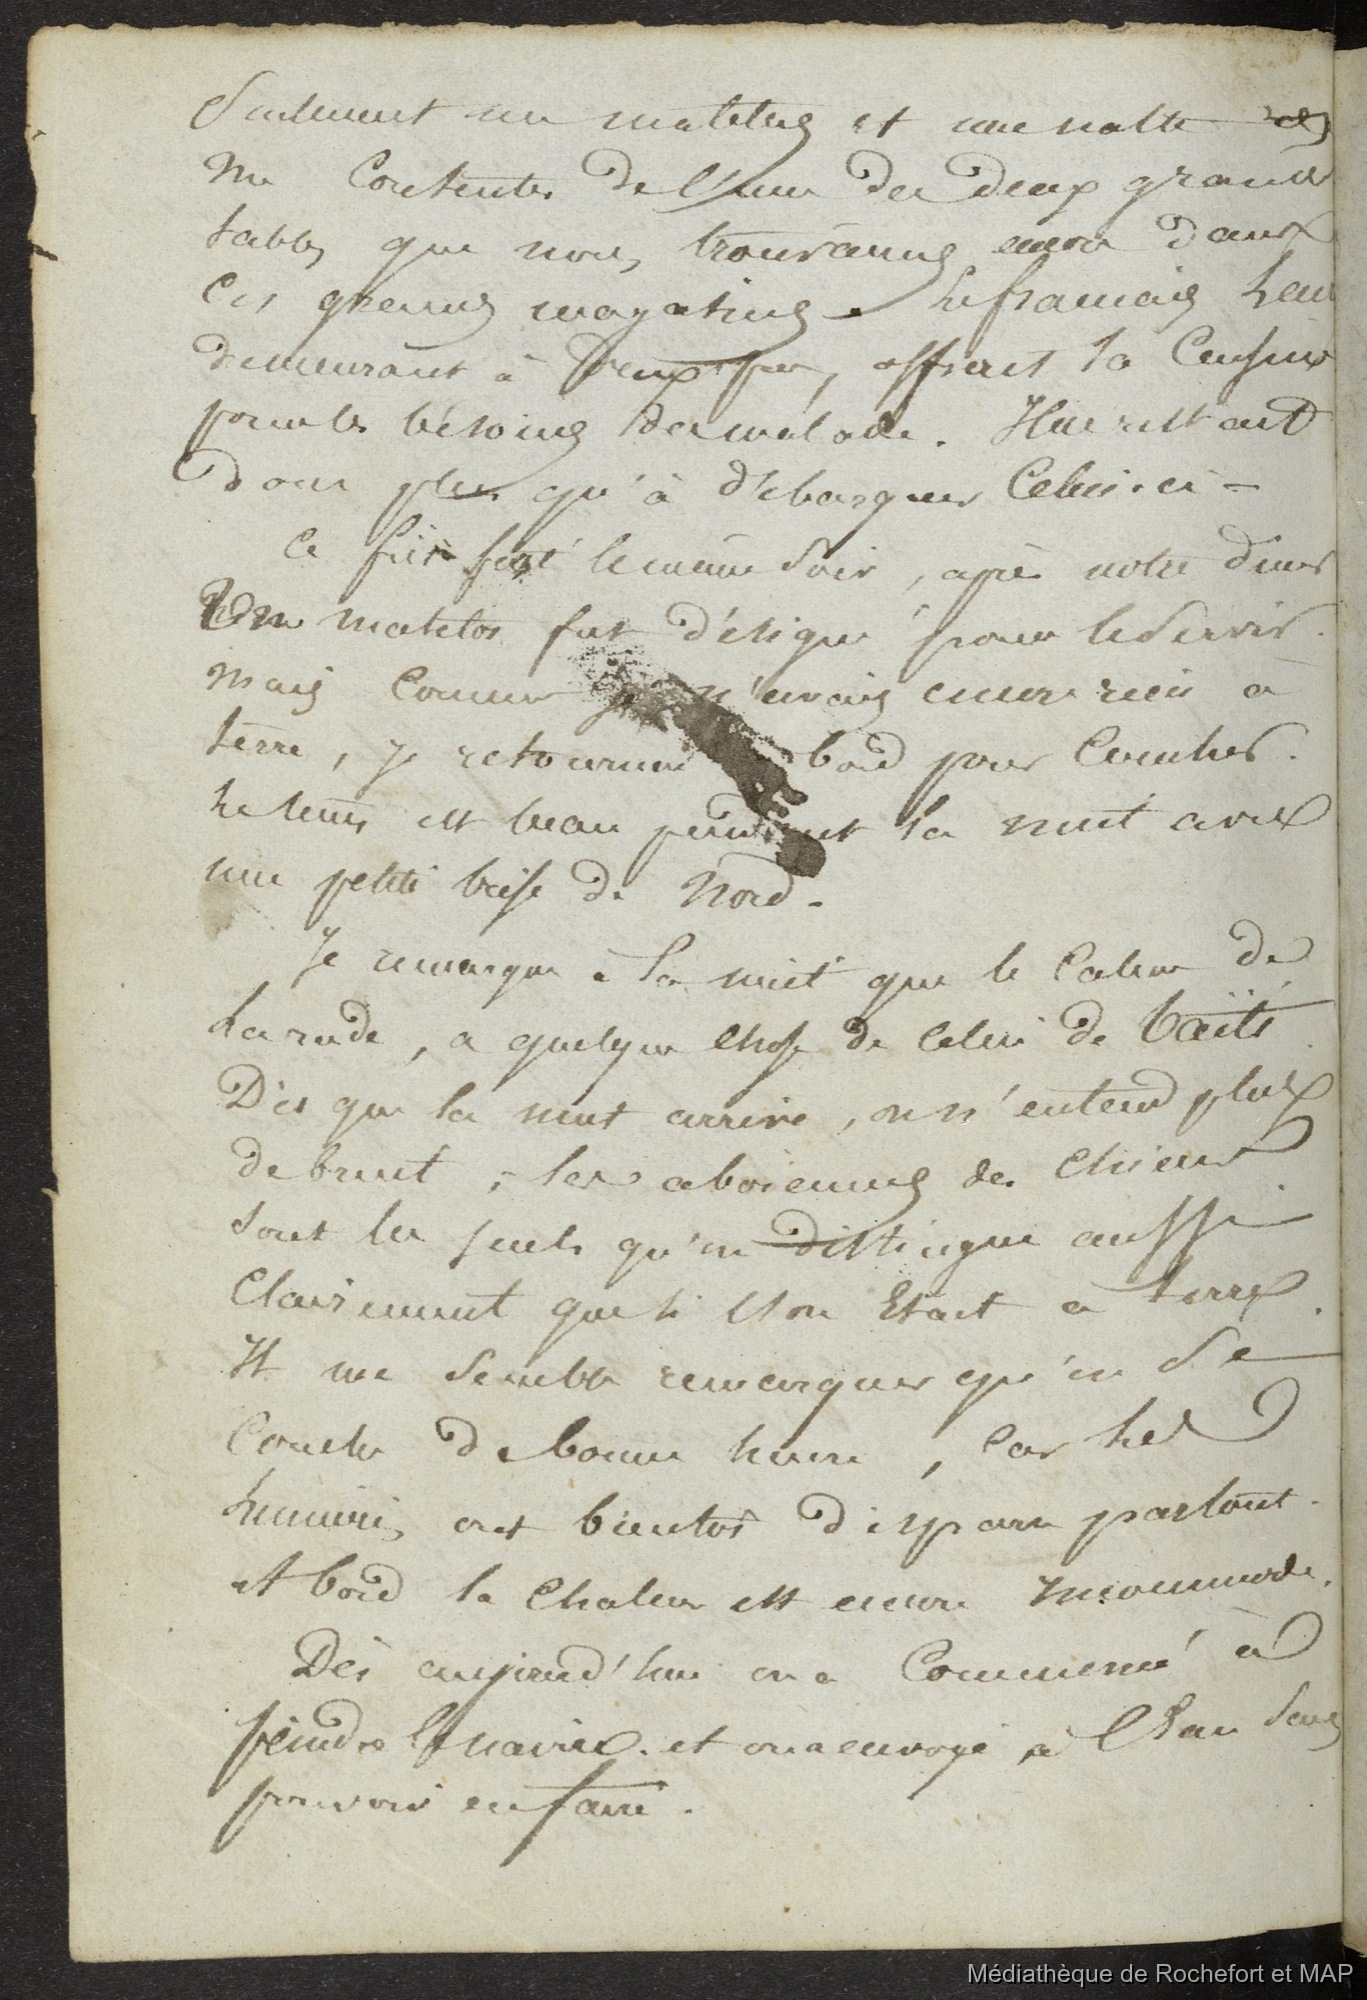 Seulement un matelas et une natte et
me Contenter de l'une des deux grandes
tables que nous trouvames encore dans
Ces grands magasins. Le francais
demeurant à deux pas, offrait sa Cuisine
pour les besoins des malade. Il ne restait
donc plus qu'à d'ebarquer Celui-ci -
Ce fut fait le même Soir, après notre diner
Un matelos fut d'ésigné pour le Servir.
Mais Comme je n'avais encore rien à
terre, je retournai bord pour Coucher.
Le tems est beau pendant la nuit avec
une petite brise de Nord.
Je remarque à la nuit que le Calme de
La rade, a quelque Chose de Celui de taïti
Dès que la nuit arrive, on n'entend plus
de bruit, les aboiemens des Chiens
sont les seuls qu'on distingue aussi
Clairement que si l'on Etait à terre.
Il me Semble remarquer qu'on Se
Couche de bonne heure, Car les
lumières ont bientot disparu partout.
A bord la Chaleur est encore incommode.
Dès aujourd'hui on a Commencé à
peindre le navire. et on a envoyé à l'Eau Sans
pouvoir en faire.
Médiathèque de Rochefort et MAP